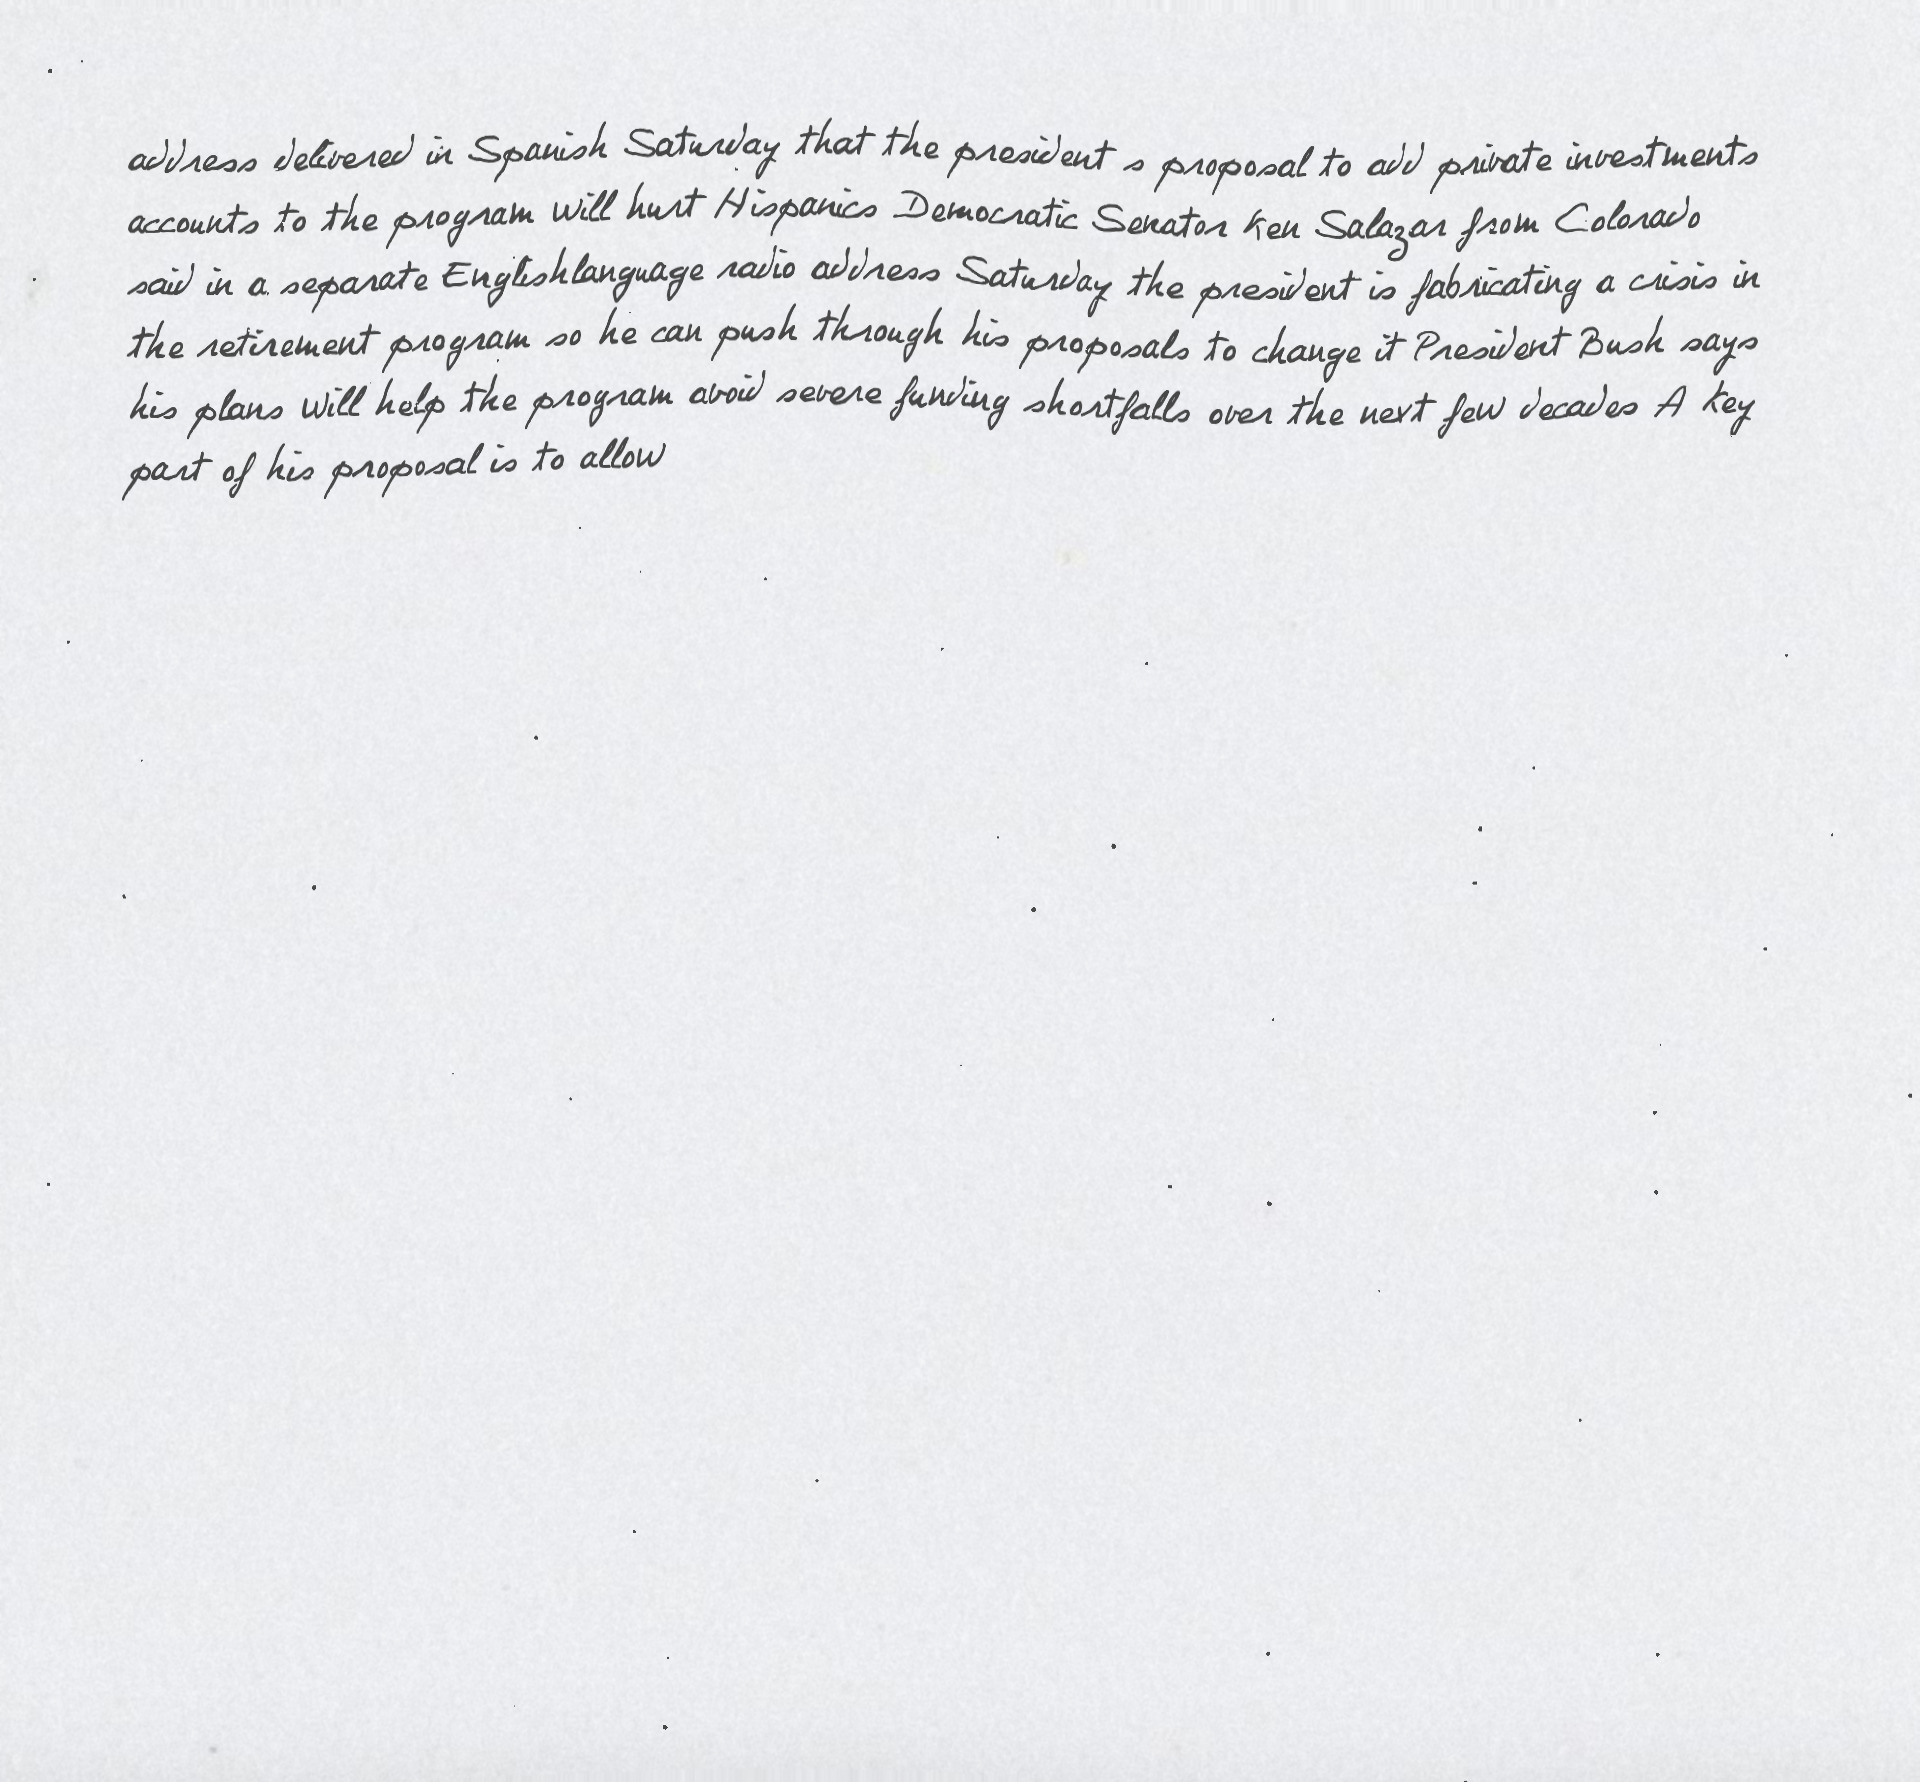 address delivered in Spanish Saturday that the president s proposal to add private investments
accounts to the program will hurt Hispanics Democratic Senator Ken Salazar from Colorado
said in a separate Englishlanguage radio address Saturday the president is fabricating a crisis in
the retirement program so he can push through his proposals to change it President Bush says
his plans will help the program avoid severe funding shortfalls over the next few decades A key
part of his proposal is to allow